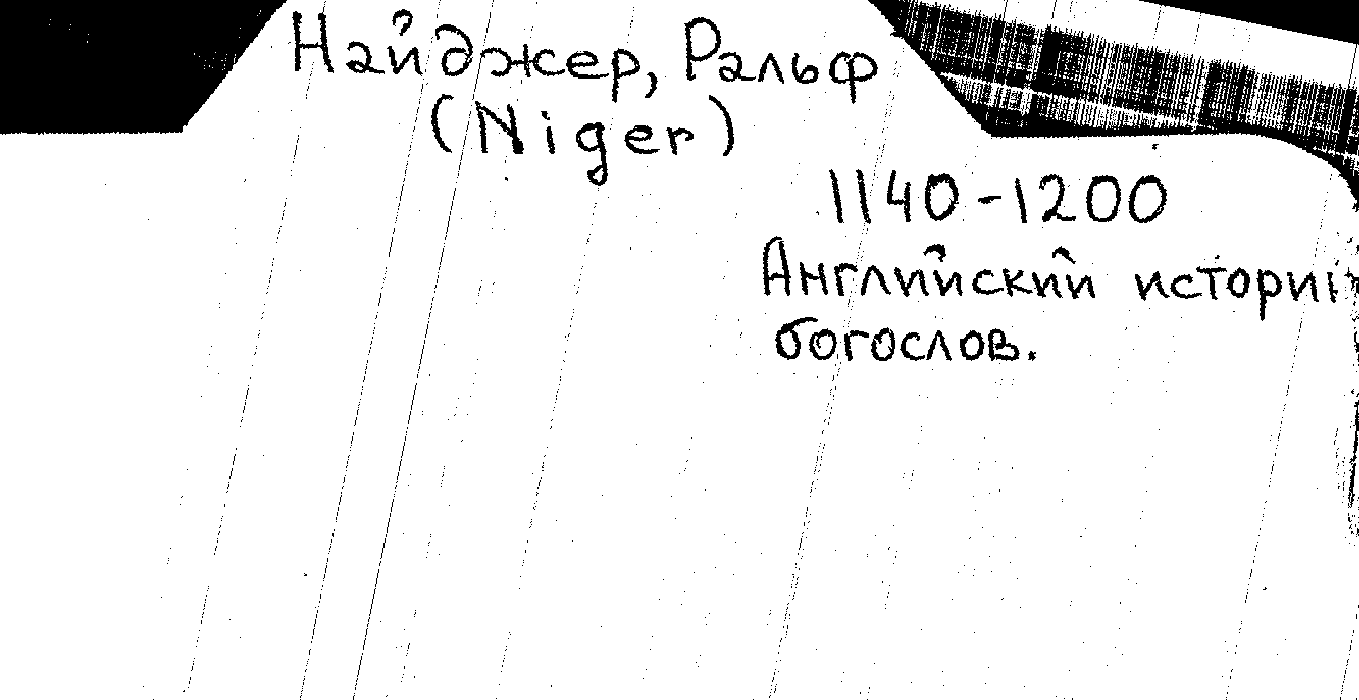 Найджер, Ральф
(Niger)
1140-1200
Английский
богослов.